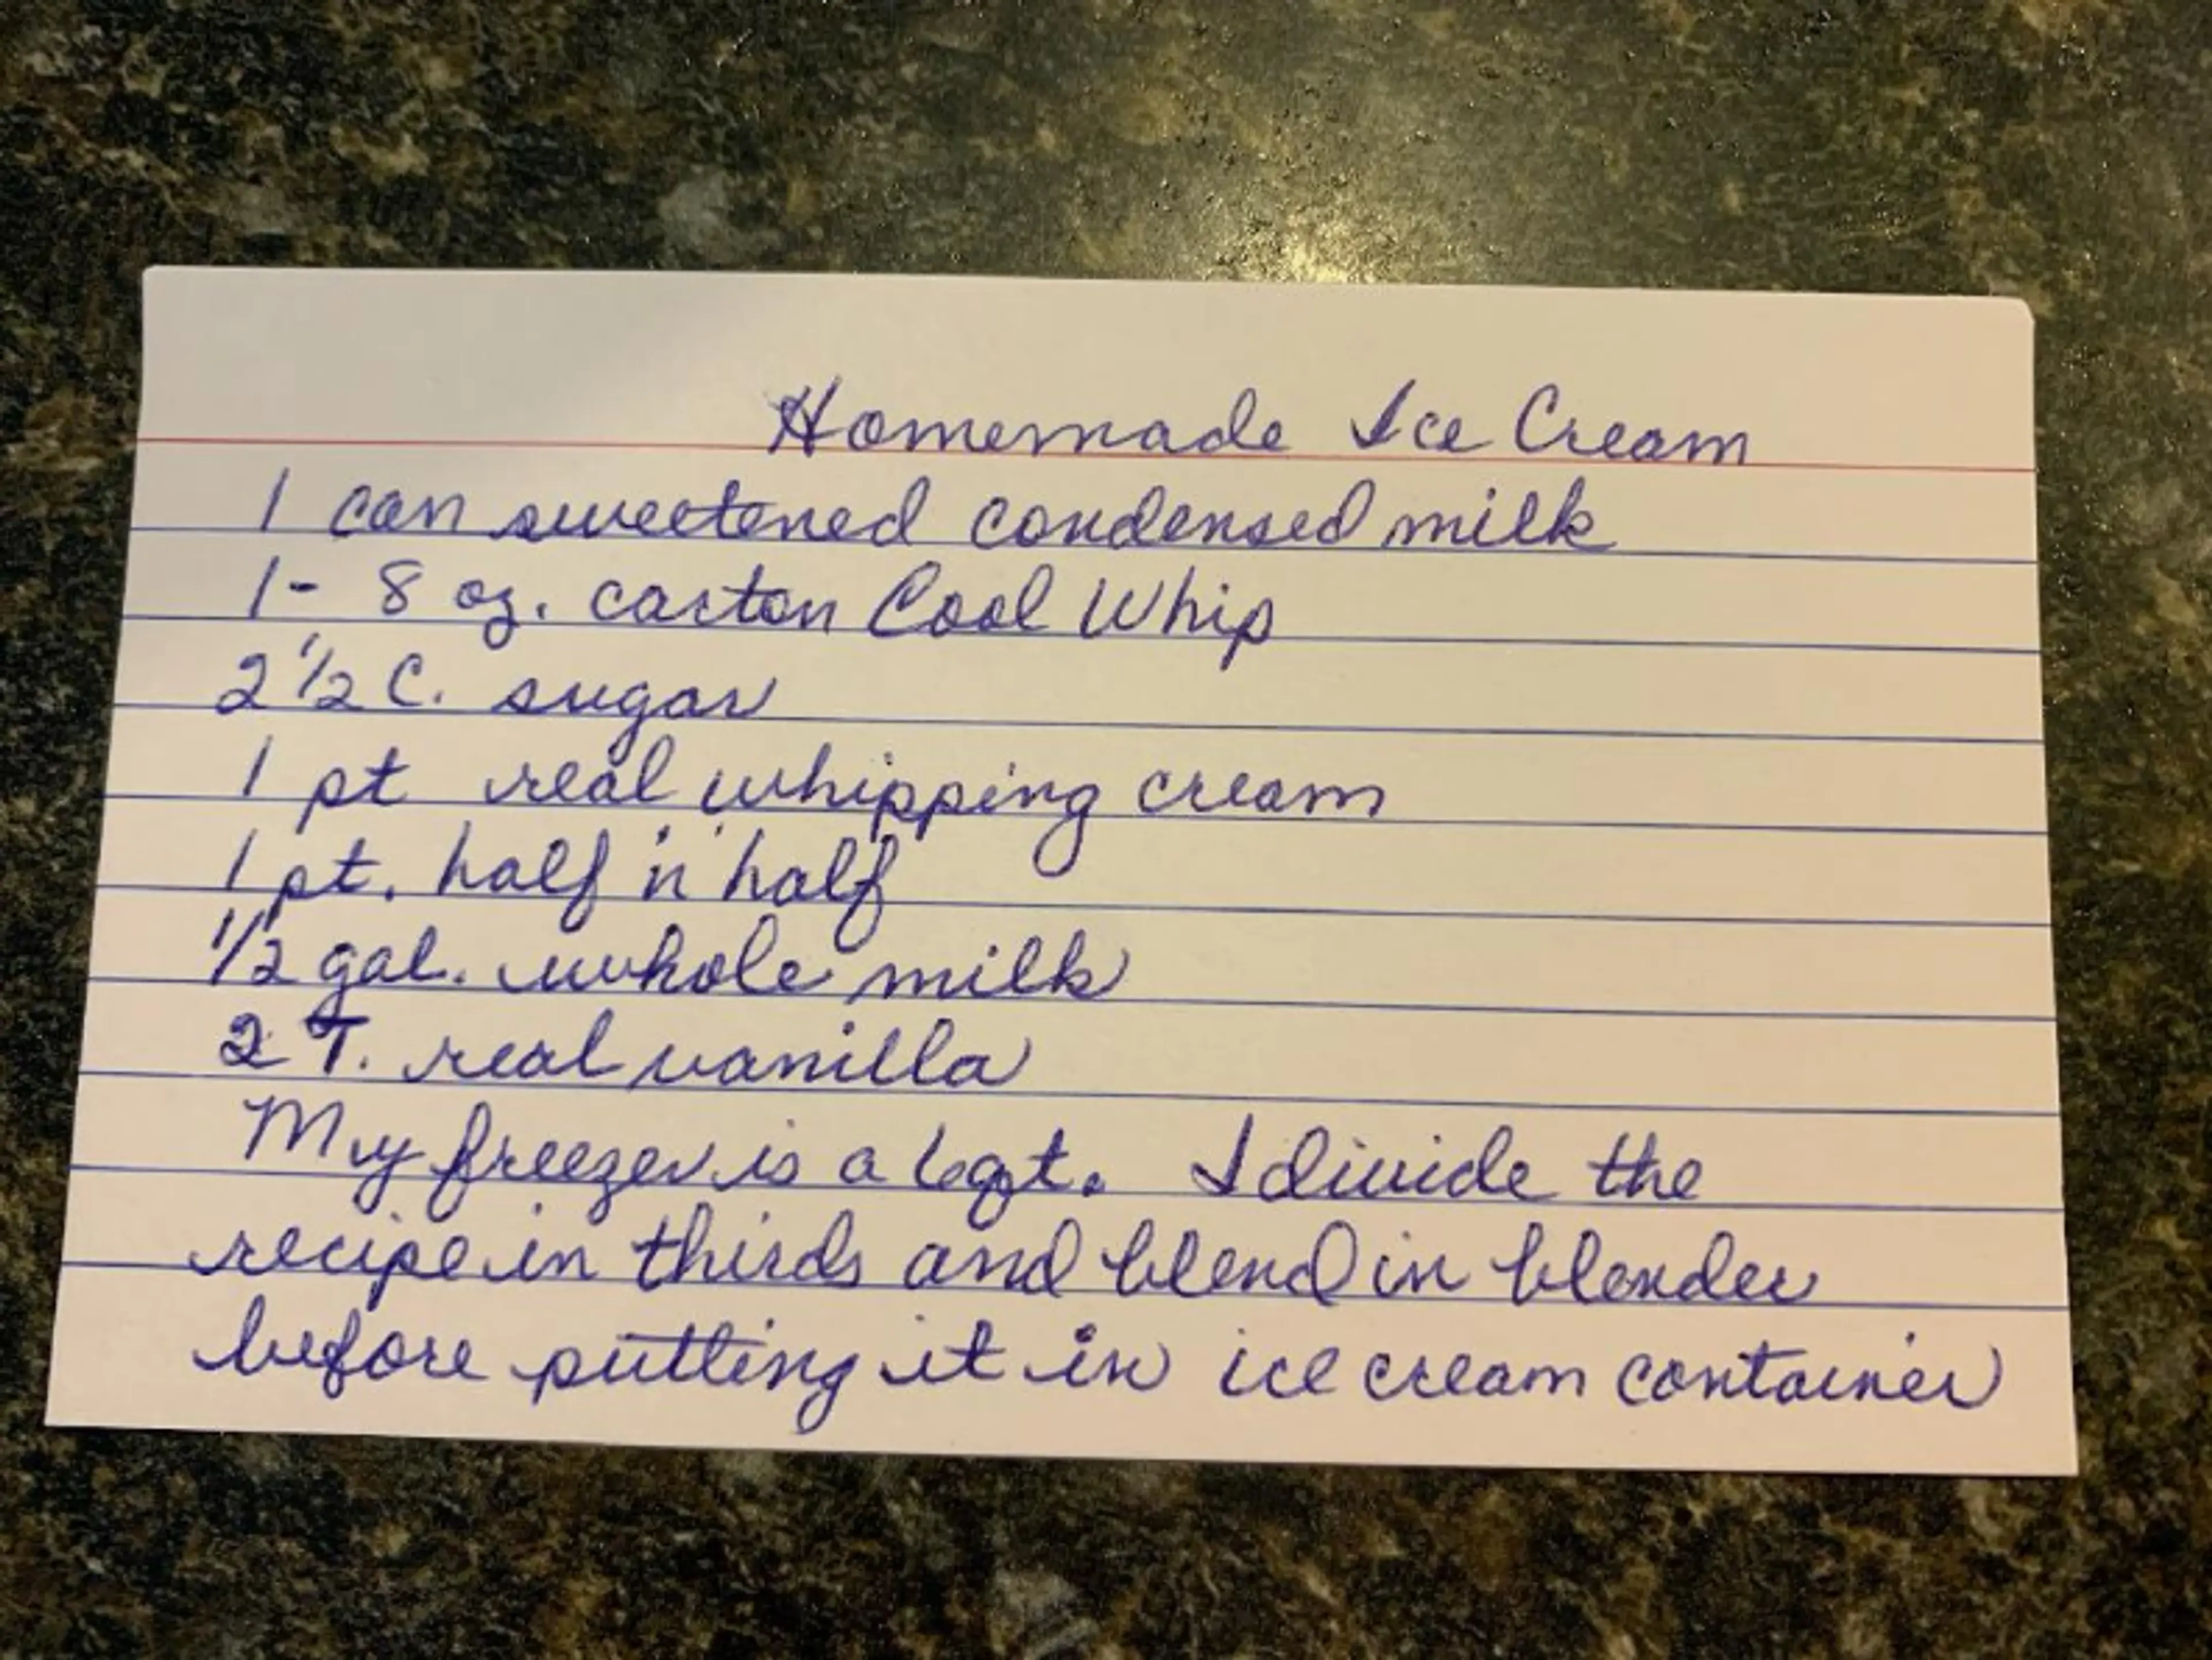 Homemade Ice Cream
1 can sweetened condensed milk
1 - 8 oz. carton Cool Whip
2 1/2 C. sugar
1 pt real whipping cream
1 pt. half 'n' half
1/2 gal. whole milk
2 T. real vanilla
My freezer is a 6 qt. I divide the
recipe in thirds and blend in blender
before putting it in ice cream container